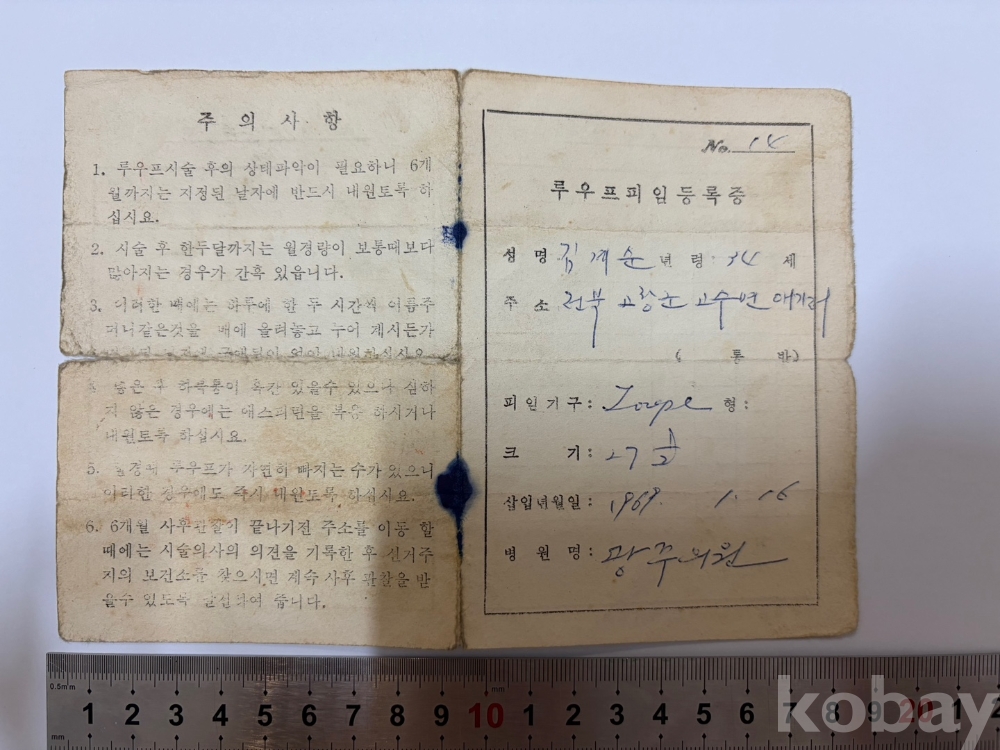 주의사항
1. 루우프시술 후의 상태파악이 필요하니 6개
월까지는 지정된 날자에 반드시 내원토록 하
십시요.
2. 시술 후 한두달까지는 월경량이 보통때보다
많아지는 경우가 간혹 있읍니다.
3. 이러한 때에는 하루에 한 두 시간씩 어름주
머니같은것을 배에 올려놓고 누어 계시든가
없이 내원하십시요.
후 하복통이 약간 있을수 있으나 심하
지 않은 경우에는 애스피린을 복용 하시거나
내원토록 하십시요.
5. 월경때 루우프가 자연히 빠지는 수가 있으니
이러한 경우에도 즉시 내원토록 하십시요.
6. 6개월 사후관찰이 끝나기전 주소를 이동 할
때에는 시술의사의 의견을 기록한 후 신거주
지의 보건소를 찾으시면 계속 사후 관찰을 받
을수 있도록 알선하여 줍니다.
No. 14
루우프피임등록증
성명 김계순 년령 34 세
주소 전북 고창군 고수면
( 통 반)
피임기구: Loope 형:
크기: 27
삽입년월일: 1969. 1. 16
병원명: 광주의원
0.5mm
mm
mm
1 2 3 4 5 6 7 8 9 10 1 2 3 4 5 6 7 8 9 20 1 2
kobay